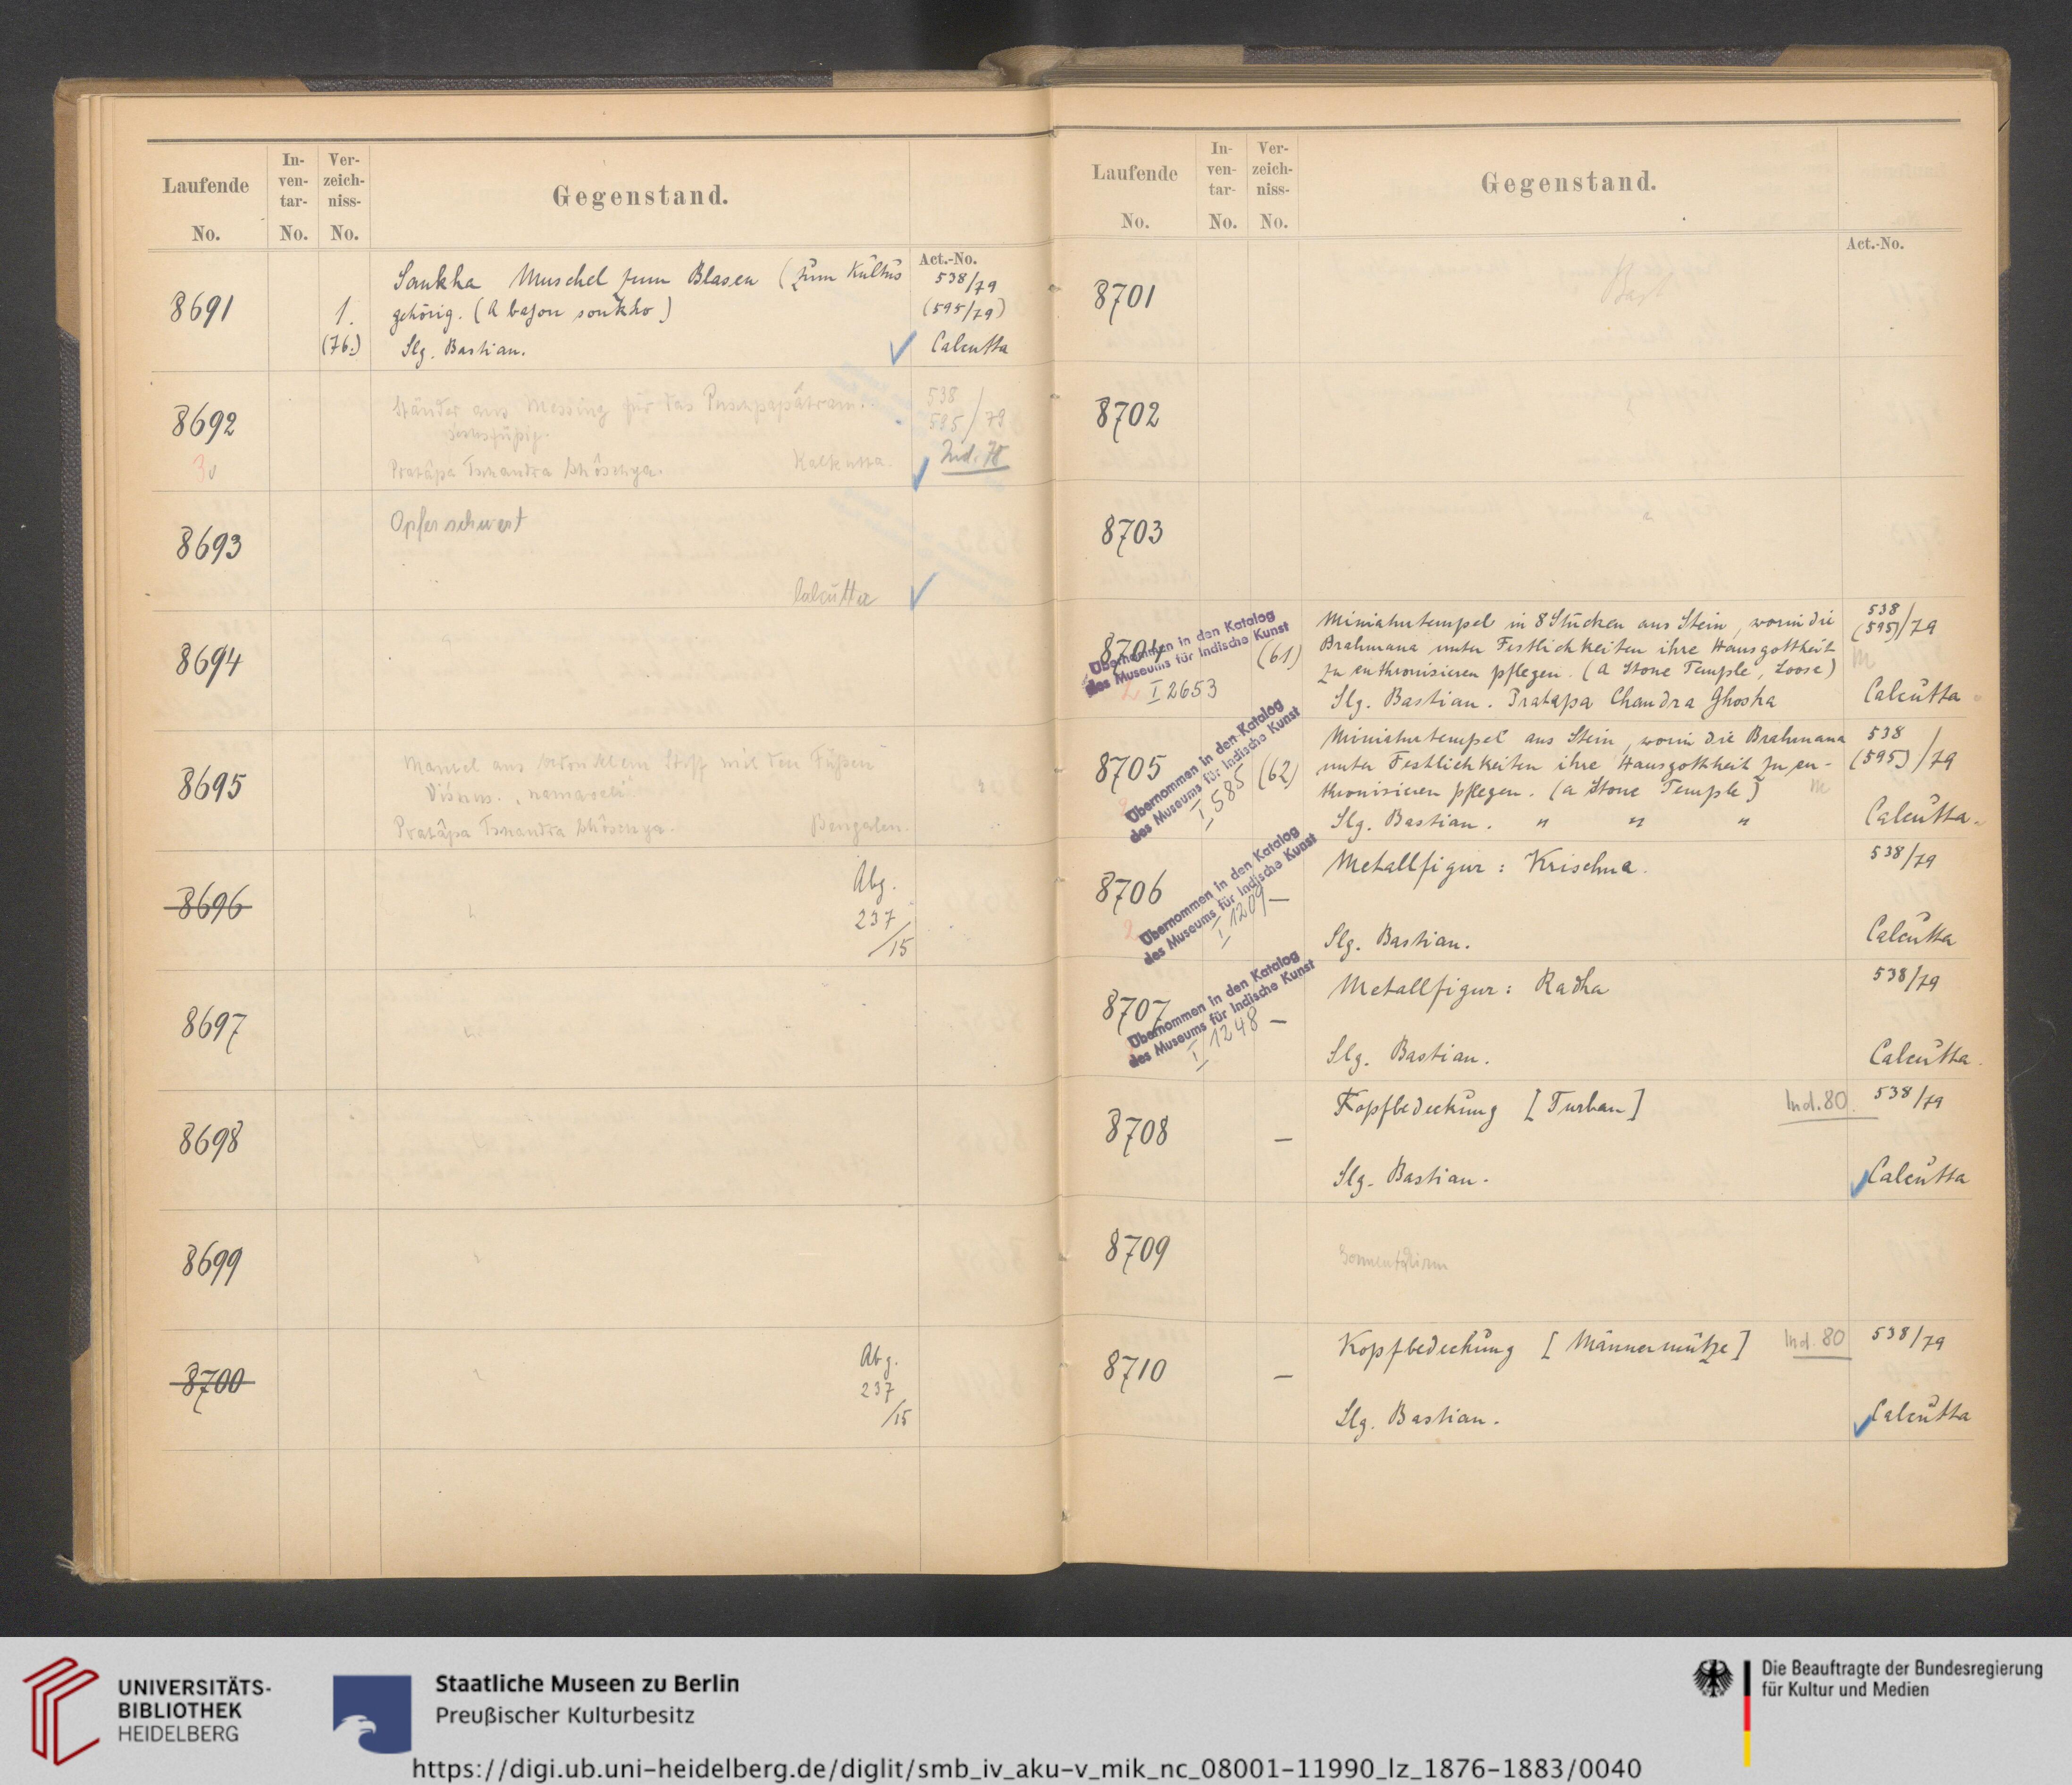 Laufende
No.
In-
ven-
tar-
No.
Ver-
zeich-
niss-
No.
Gegenstand.
Act.-No.
8691
1.
(76.)
Sankha Muschel zum Blasen (zum Kultus
gehörig. (A bajon sonkho)
Slg. Bastian.
538/79
(595/79)
Calcutta
8692
Ständer aus Messing für das Puschpapâtram.
Pratâpa Tschandra Ghôschya.
Kalkutta.
538
595/79
Ind. 78
8693
Opferschwert
Calcutta
8694
8695
Mantel aus Stoff mit den Füßen
Vishnus. "namaveli"
Pratâpa Tschandra Ghôschya.
Bengalen.
8696
Abg.
237
/15
8697
8698
8699
8700
Abg.
237
/15
Laufende
No.
In-
ven-
tar-
No.
Ver-
zeich-
niss-
No.
Gegenstand.
Act.-No.
8701
8702
8703
8704
Übernommen in den Katalog
des Museums für Indische Kunst
I 2653
(61)
Miniaturtempel in 8 Stücken aus Stein, worin die
Brahmana unter Festlichkeiten ihre Hausgottheit
zu enthronisieren pflegen. (a Stone Temple, Loose)
Slg. Bastian. Pratapa Chandra Ghosha
538
(595)/79
Calcutta
8705
Übernommen in den Katalog
des Museums für Indische Kunst
I 585
(62)
Miniaturtempel aus Stein, worin die Brahmana
unter Festlichkeiten ihre Hausgottheit zu en-
thronisieren pflegen. (a Stone Temple)
Slg. Bastian. " " "
538
(595)/79
Calcutta.
8706
Übernommen in den Katalog
des Museums für Indische Kunst
I 1209
–
Metallfigur: Krischna.
Slg. Bastian.
538/79
Calcutta
8707
Übernommen in den Katalog
des Museums für Indische Kunst
I 1248
–
Metallfigur: Radha
Slg. Bastian.
538/79
Calcutta.
8708
–
Kopfbedeckung [Turban]
Ind. 80.
Slg. Bastian.
538/79
Calcutta
8709
Sonnenschirm
8710
–
Kopfbedeckung [Männermütze]
Ind. 80
Slg. Bastian.
538/79
Calcutta
UNIVERSITÄTS-
BIBLIOTHEK
HEIDELBERG
Staatliche Museen zu Berlin
Preußischer Kulturbesitz
Die Beauftragte der Bundesregierung
für Kultur und Medien
https://digi.ub.uni-heidelberg.de/diglit/smb_iv_aku-v_mik_nc_08001-11990_lz_1876-1883/0040